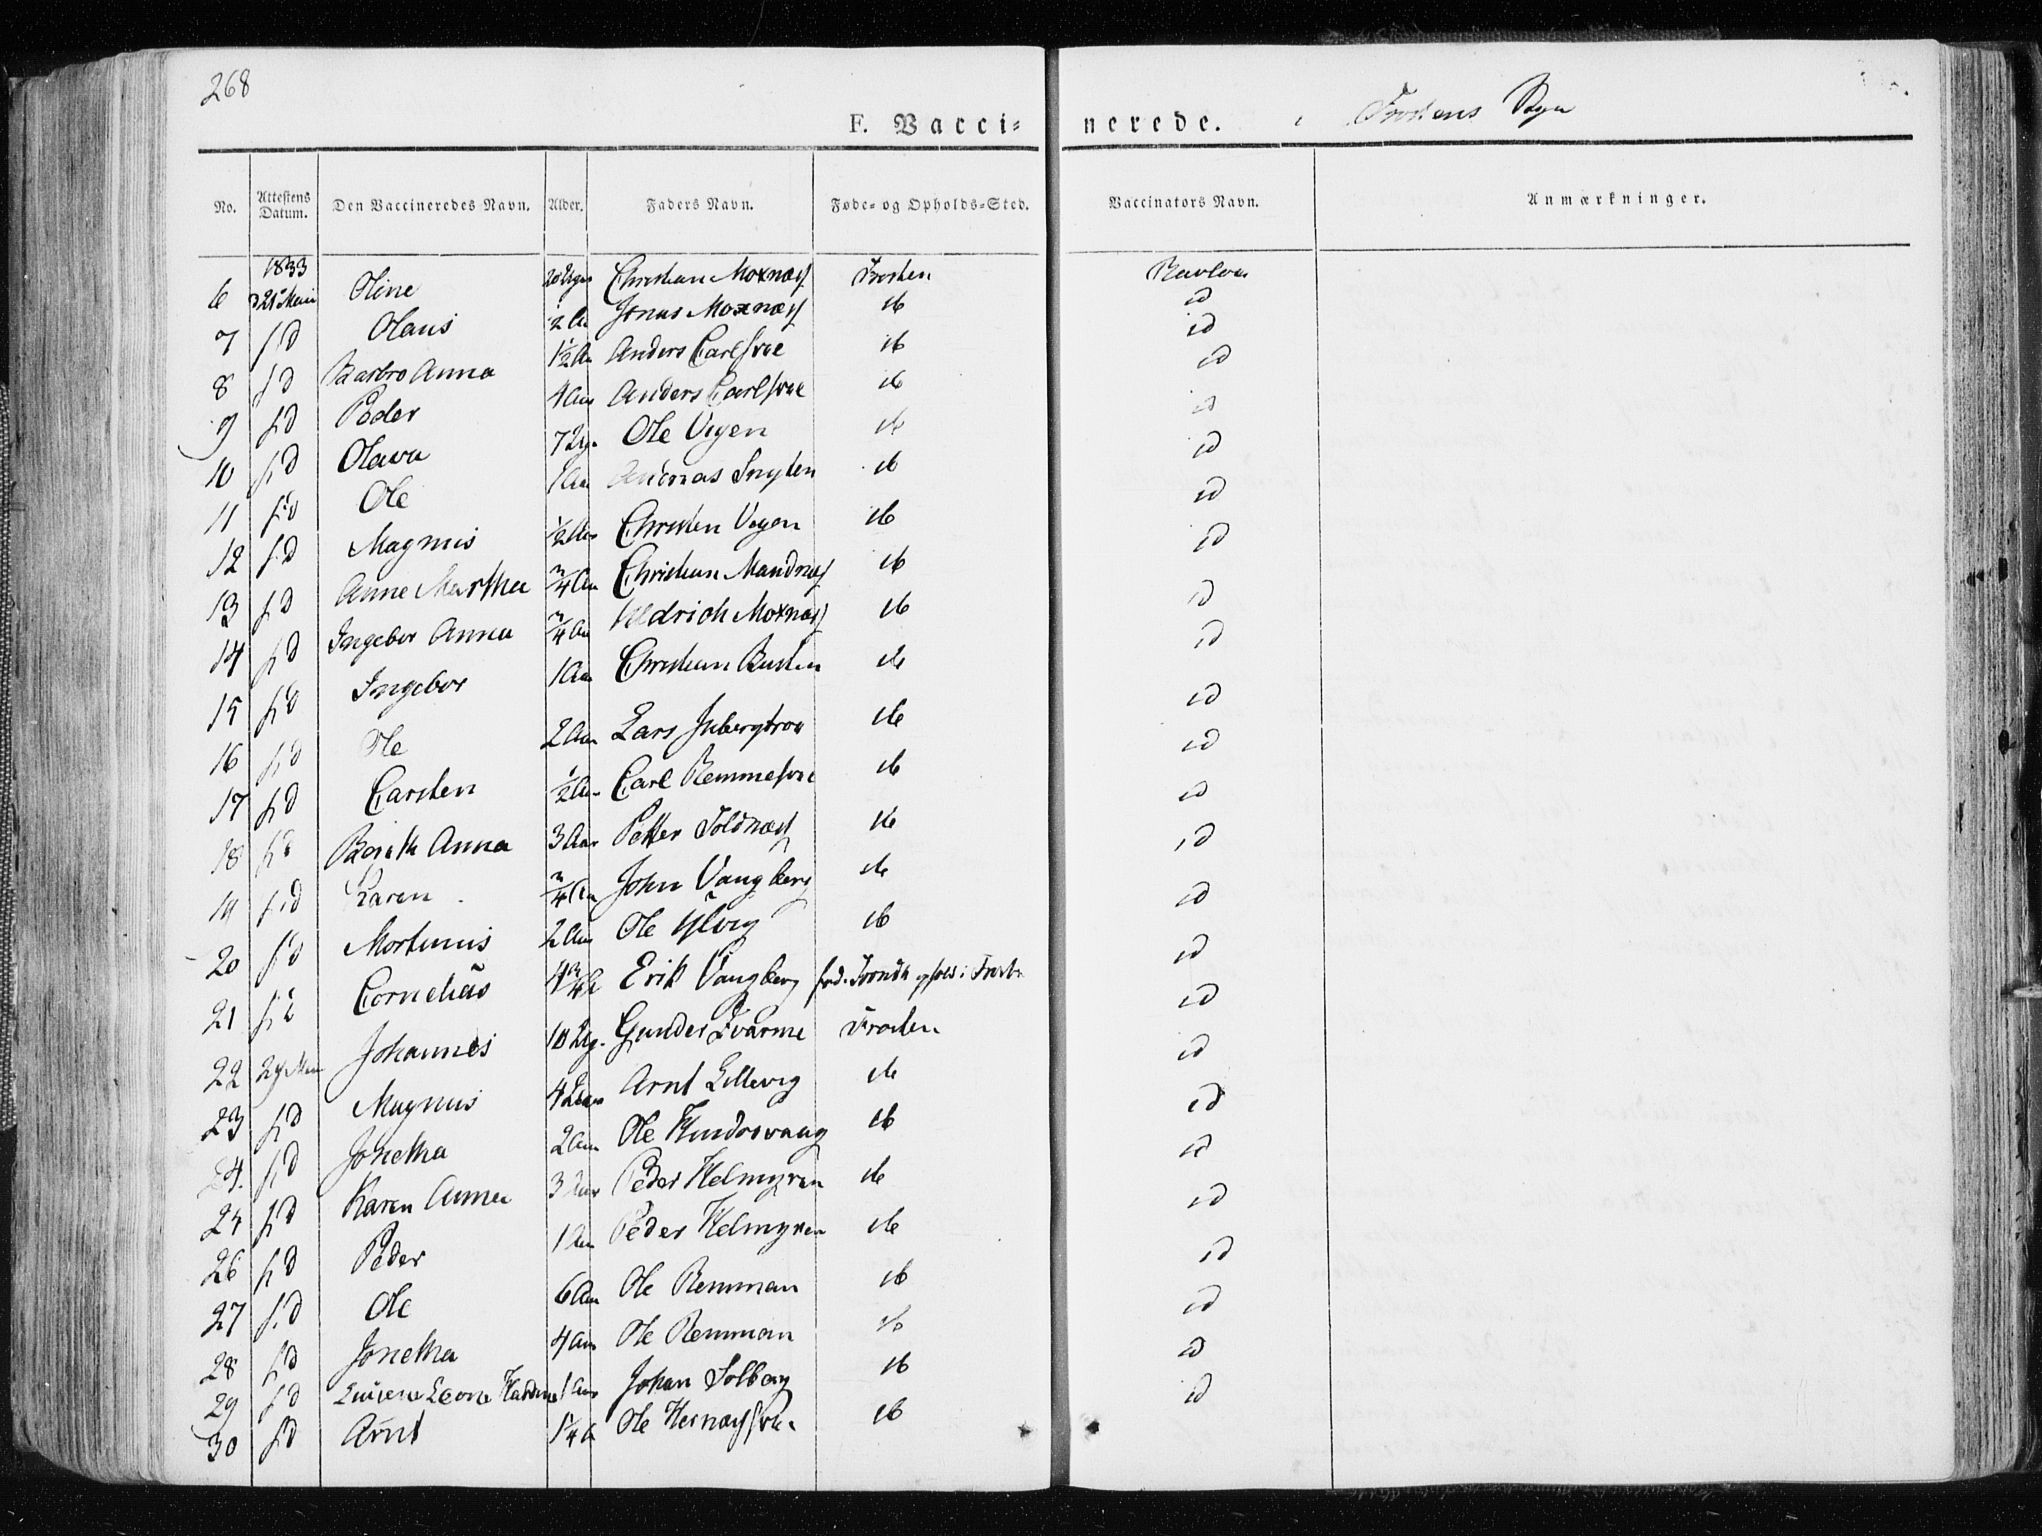 268
F. Vacci- nerede. i Frostens Sogn
No. Attestens Datum. Den Vaccineredes Navn. Alder. Faders Navn. Føde- og Opholds-Sted. Vaccinators Navn. Anmærkninger.
1833
6 d 21 Maii Oline 20 Uger Christian Moxnæss Frosten
7 s d Olaus ½ Aar Jonas Moxnæss ib id
8 s d Barbro Anna 1½ A Anders Carlsvee ib id
9 s d Peder 4 Aar Anders Carlsvee ib id
10 s d Olava 7 Ug. Ole Vigen ib id
11 s d Ole 1 Aar Andreas ib id
12 s d Magnus ½ Aar Christen Vigen ib id
13 s d Anne Martha ¾ Aar Christian Mandnæs ib id
14 s d Ingebor Anna ¾ Aar Uldrich Moxnæss ib id
15 s d Ingebor 1 Aar Christian ib id
16 s d Ole 2 Aar Lars ib id
17 s d Carsten ½ Aar Carl Remmesvee ib id
18 s d Berith Anna 3 Aar Petter Soldnæss ib id
19 s d Karen ¾ Aar John Vangberg ib id
20 s d Mortinus 2 Aar Ole ib id
21 s d Cornelius 4¾ A Erik Vangberg fød i Trondh opholds i Frosten id
22 29 Maii Johannes 10 Ug. Gunder Qvarme Frosten id
23 s d Magnus 4 Uger Arnt Lillevig ib id
24 s d Jonetha 2 Aar Ole ib id
25 s d Karen Anna 3 Aar Peder Helmyren ib id
26 s d Peder 1 Aar Peder Helmyren ib id
27 s d Ole 6 Aar Ole Remman ib id
28 s d Jonetha 4 Aar Ole Remman ib id
29 s d 1 Aar Johan Solberg ib id
30 s d Arnt 1¼ A Ole ib id